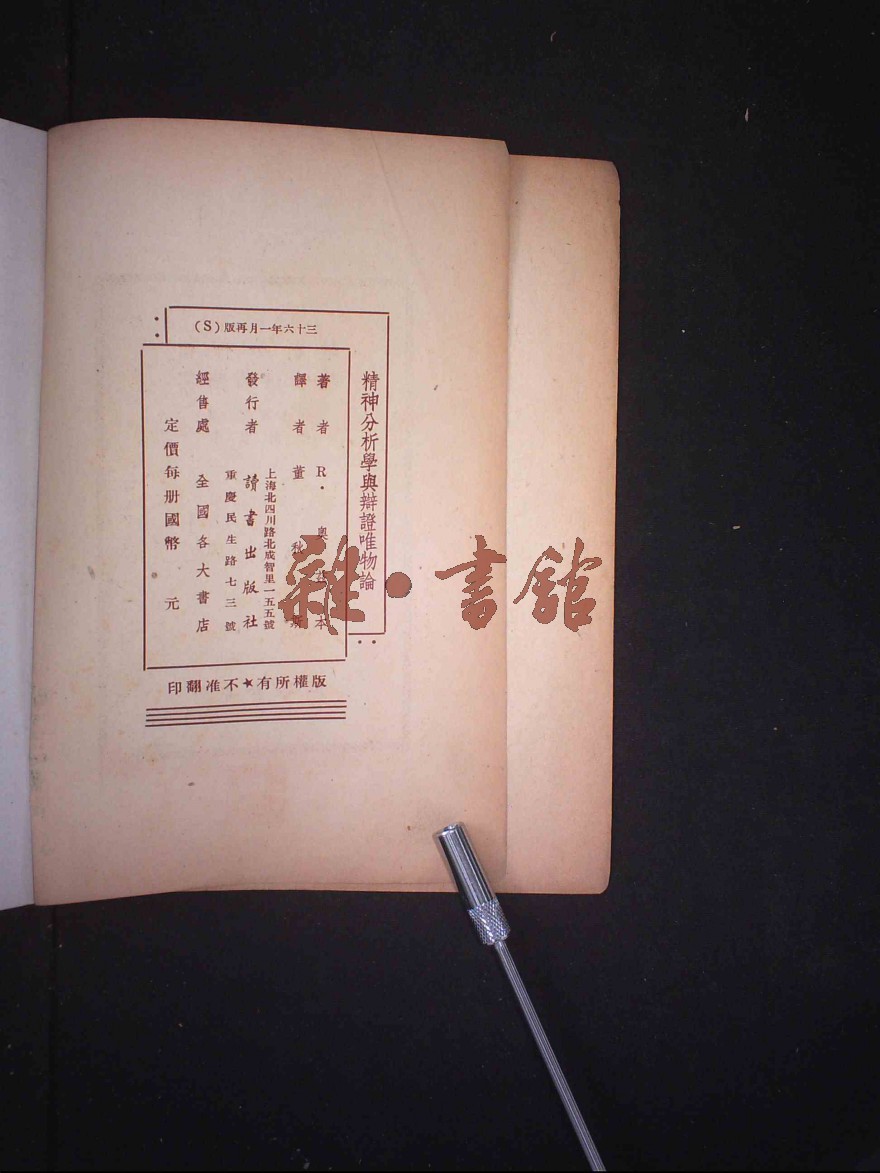 三十六年一月再版（S）
精神分析學與辯證唯物論
著者 R·奧 本
譯者 董秋斯
上海北四川路北成智里一五五號
發行者 讀書出版社
重慶民生路七三號
經售處 全國各大書店
定價每册國幣 元
版權所有★不准翻印
雜·書館